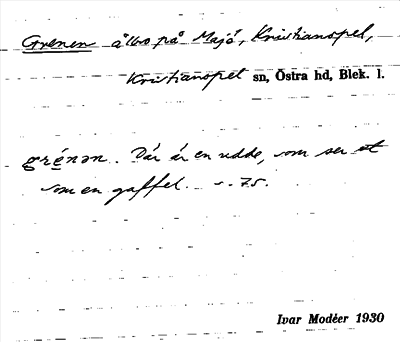 Grenen ålbo på Majö, Kristianopel,
Kristianopel sn, Östra hd, Blek. l.
grénən. Där är en udde, som ser ut
som en gaffel. s. 75.
Ivar Modéer 1930